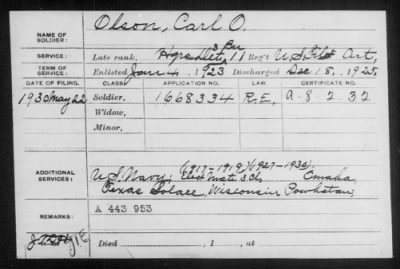 NAME OF SOLDIER: Olson, Carl O.
SERVICE: Late rank, 3 Bn
11 Reg't U S Art,
TERM OF SERVICE: Enlisted Jan 4, 1923 Discharged Dec 18, 1925,
DATE OF FILING. CLASS. APPLICATION NO. LAW. CERTIFICATE NO.
1930 May 22 Soldier. 1668334 R.E. A-8-2-32
Widow,
Minor,
ADDITIONAL SERVICES: U.S. Navy, (1917-1919) (1927-1930),
Elec Mate 3 Cl, Omaha,
Texas Solace, Wisconsin Powhatan,
REMARKS: A 443 953
Died , 1 , at